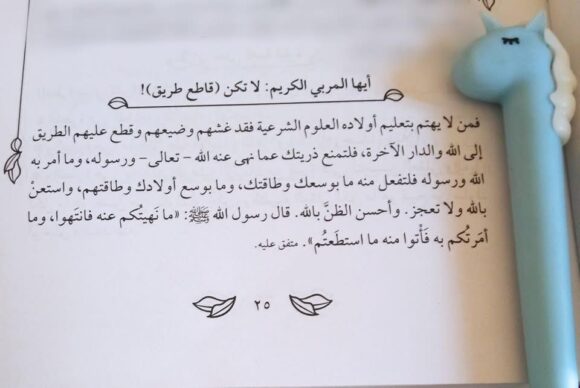 أيها المربي الكريم: لا تكن (قاطع طريق)!
فمن لا يهتم بتعليم أولاده العلوم الشرعية فقد غشهم وضيعهم وقطع عليهم الطريق
إلى الله والدار الآخرة، فلتمنع ذريتك عما نهى عنه الله - تعالى - ورسوله، وما أمر به
الله ورسوله فلتفعل منه ما بوسعك وطاقتك، وما بوسع أولادك وطاقتهم، واستعنْ
بالله ولا تعجز. وأحسن الظنَّ بالله. قال رسول الله ﷺ: «ما نَهيتُكم عنه فانتَهوا، وما
أمَرتُكم به فَأْتوا منه ما استطَعتُم». متفق عليه.
٢٥